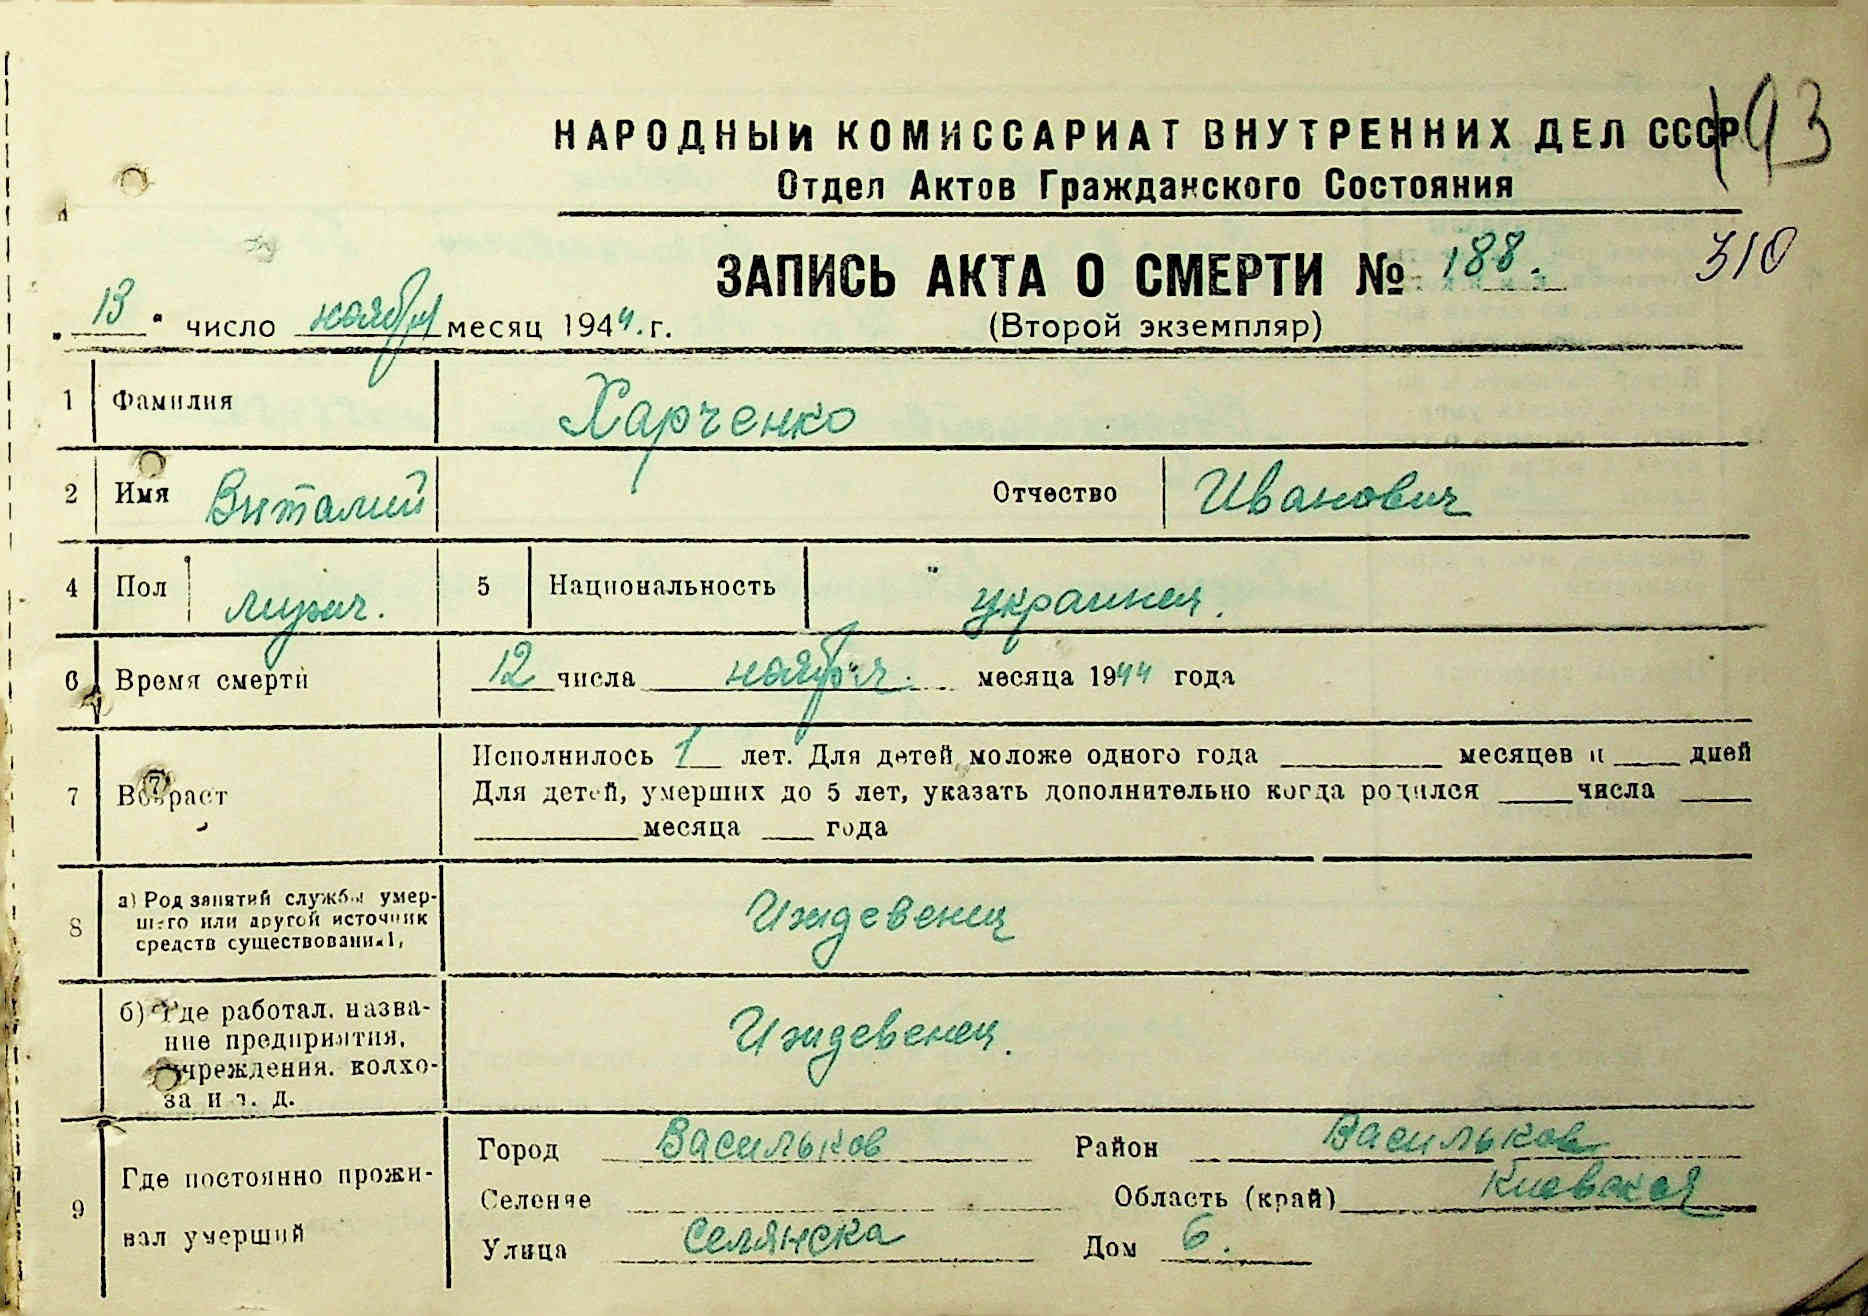 193
НАРОДНЫЙ КОМИССАРИАТ ВНУТРЕННИХ ДЕЛ СССР
Отдел Актов Гражданского Состояния
ЗАПИСЬ АКТА О СМЕРТИ № 188.
310
„13“ число ноября месяц 1944. г.
(Второй экземпляр)
1 Фамилия Харченко
2 Имя Виталий Отчество Иванович
4 Пол мужч. 5 Национальность украинец.
6 Время смерти 12 числа ноября. месяца 1944 года
7 Возраст
Исполнилось 1 лет. Для детей моложе одного года ____ месяцев и ____ дней
Для детей, умерших до 5 лет, указать дополнительно когда родился ____ числа ____
____ месяца ____ года
8 а) Род занятий службы умер-
шего или другой источник
средств существования,
Иждевенец
б) Где работал, назва-
ние предприятия,
учреждения, колхо-
за и т. д.
Иждевенец.
9 Где постоянно прожи-
вал умерший
Город Васильков Район Васильков
Селение Область (край) Киевская
Улица Селянска Дом 6.